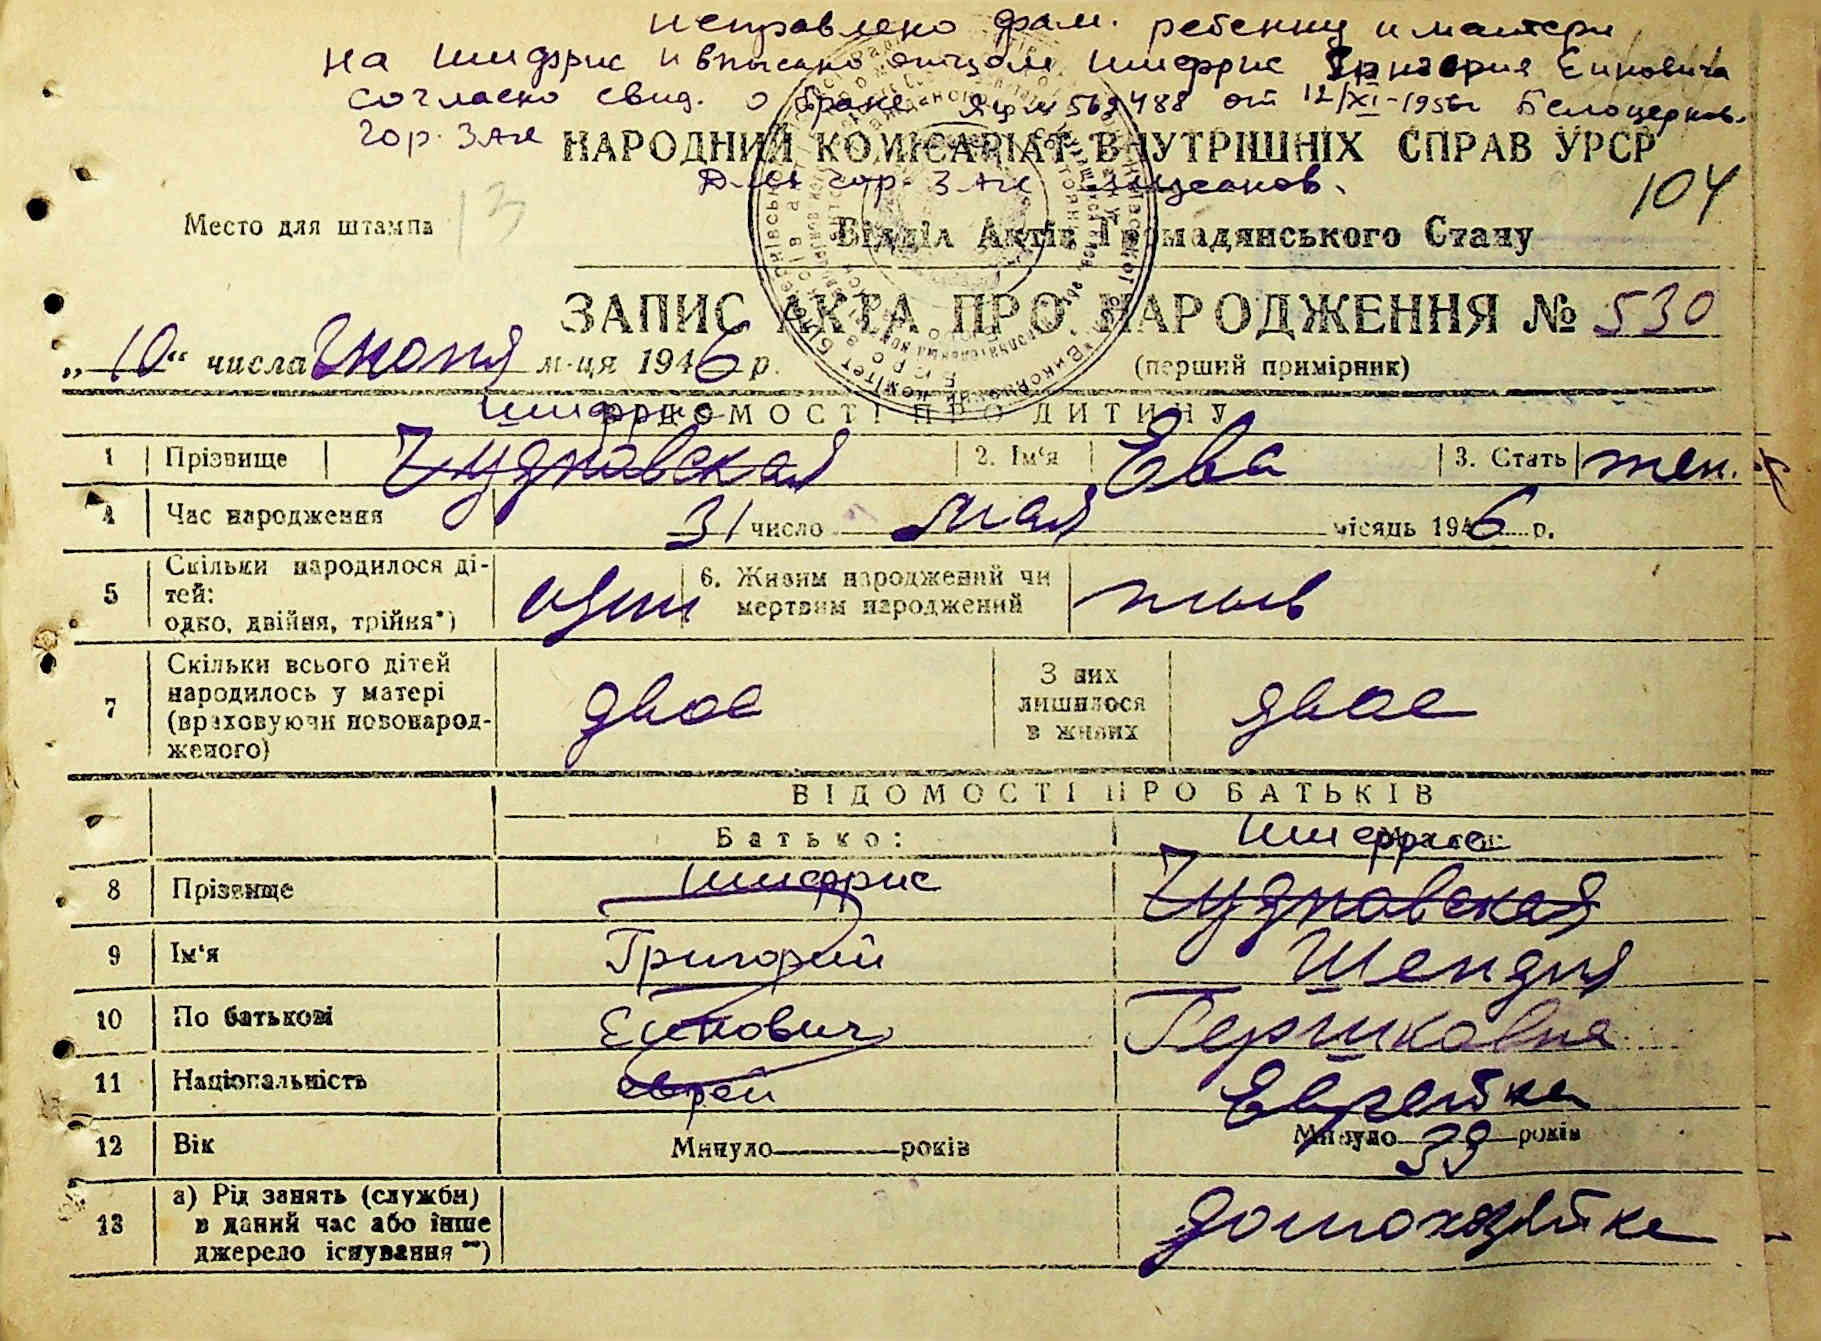 исправлено фам. ребенку и матери
на Шифрис и вписано отцом Шифрис Григория Еиновича
согласно свид. о браке № 569488 от 12/XI-1956г Белоцерков.
гор. ЗАГС
НАРОДНИЙ КОМІСАРІАТ ВНУТРІШНІХ СПРАВ УРСР
гор. ЗАГС
104
13
Место для штампа
Відділ Актів Громадянського Стану
ЗАПИС АКТА ПРО НАРОДЖЕННЯ № 530
„10“ числа Июня м-ця 1946 р.
(перший примірник)
Шифрис
ВІДОМОСТІ ПРО ДИТИНУ
1 Прізвище Чудновская 2. Ім'я Ева 3. Стать жен.
4 Час народження 31 число Мая місяць 1946 р.
5 Скільки народилося ді-
тей:
одно, двійня, трійня*) один
6. Живим народжений чи
мертвим народжений жив
7 Скільки всього дітей
народилось у матері
(враховуючи новонарод-
женого) двое
З них
лишилося
в живих двое
ВІДОМОСТІ ПРО БАТЬКІВ
Батько: Шифрис
8 Прізвище Шифрис Чудновская
9 Ім'я Григорий Шендля
10 По батькові Еинович Гершковна
11 Національність еврей Еврейка
12 Вік Минуло років Минуло 39 років
13 а) Рід занять (служби)
в даний час або інше
джерело існування **) домохозяйка